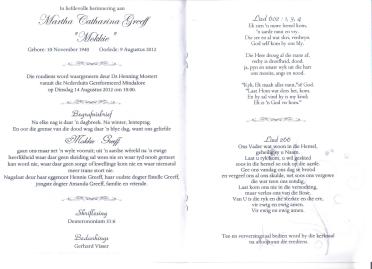 In liefdevolle herinnering aan
Martha Catharina Greeff
"Mekkie"
Gebore: 10 November 1940 Oorlede: 9 Augustus 2012
Die roudiens word waargeneem deur Ds Henning Mostert
vanuit die Nederduits Gereformeerd Mindalore
op Dinsdag 14 Augustus 2012 om 10:00.
Begrafnisbrief
Na elke nag is daar 'n dagbreek. Na winter, lentepag.
En oor die grense van die dood wag daar 'n blye dag, want ons geliefde
Mekkie Greeff
gaan ons maar net 'n wyle vooruit; uit 'n aardse wêreld na 'n ewige
heerlikheid waar daar geen skeiding sal wees nie en waar tyd nooit gemeet
kan word nie, waar daar geen sorge of kwellinge kom nie en waar niemand
meer trane stort nie.
Nagelaat deur haar eggenoot Hennie Greeff, haar oudste dogter Estelle Greeff,
jongste dogter Amanda Greeff, familie en vriende.
Skriflesing
Deuteronomium 33:6
Bedankings
Gerhard Visser
Lied 602 : 1, 3, 4
Ek sien 'n nuwe hemel kom,
'n aarde nuut en vry.
Die see en al wat dros, verdwyn;
God self kom by ons bly.
Die Heer droog al die trane af,
verby is droefheid, dood,
ja, pyn en smart wyk uit die hart
ons meeste, angs en nood.
"Kyk, Ek maak alles nuut," sê God.
"Laat Hom wat dors het, kom.
En hy sal vind hy is my kind;
Ek is 'n God vir hom."
Lied 266
Ons Vader wat woon in die Hemel,
geheilig is u Naam.
Laat u ryk kom, u wil geskied
soos in die hemel so ook op die aarde.
Gee ons vandag ons dag se brood
en vergeef ons al ons skulde, net soos ons vergewe
die wat teen ons sondig,
Laat kom ons nie in die versoeking,
maar verlos ons van die Bose.
Van U is die ryk en die sterkte en die eer,
vir ewig en ewig amen.
Vir ewig en ewig amen.
Tee en verversings sal bedien word by die kerksaal
na afloop van die erediens.